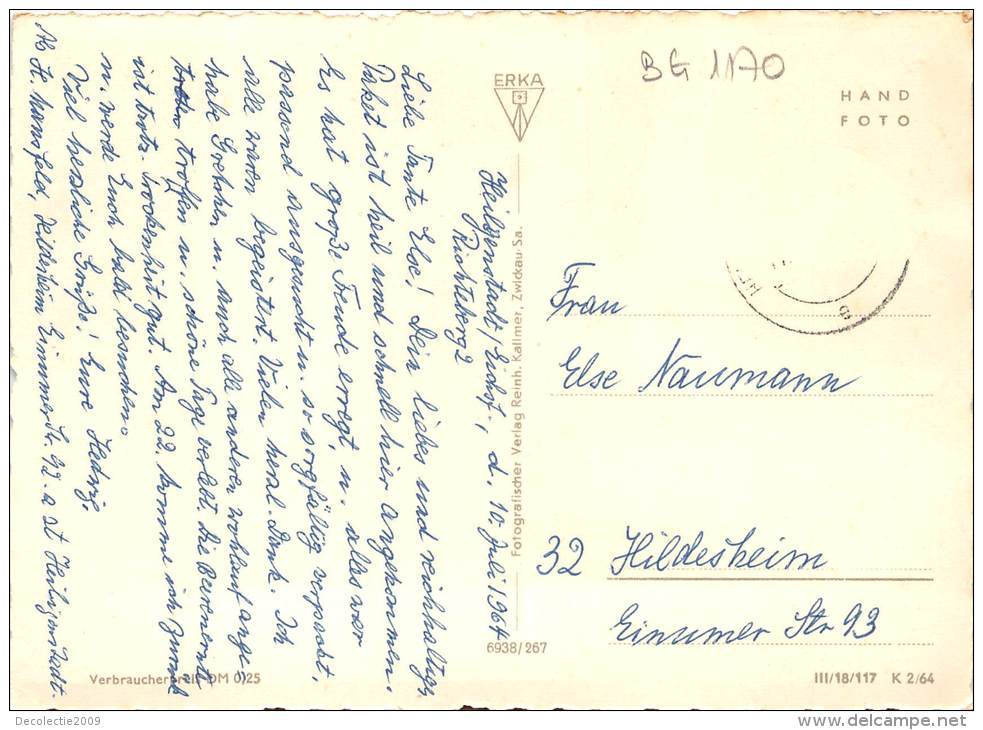 BG 1170
HAND
FOTO
ERKA
Heiligenstadt/Eichsf., d. 10. Juli 1964
Richteberg 2
Liebe Tante Else! Dein liebes und reichhaltiges
Paket ist heil und schnell hier angekommen.
Es hat große Freude erregt, u. alles war
passend ausgesucht u. so sorgfältig verpackt,
alle waren begeistert. Vielen herzl. Dank. Ich
habe Gretchen u. auch alle anderen wohlauf ange-
troffen u. schöne Tage verlebt. Die Beerenernte
ist trotz Trockenheit gut. Am 22. komme ich zurück
u. werde Euch bald besuchen.
Viel herzliche Grüße! Eure Hedwig.
Ab H. Mansfeld, Hildesheim Einumer Str. 92. a Zt Heiligenstadt.
Fotografischer Verlag Reinh. Kallmer, Zwickau Sa.
6938/267
Frau
Else Naumann
32 Hildesheim
Einumer Str 93
Verbraucherpreis DM 0,25
III/18/117 K 2/64
Decolectie2009
www.delcampe.net